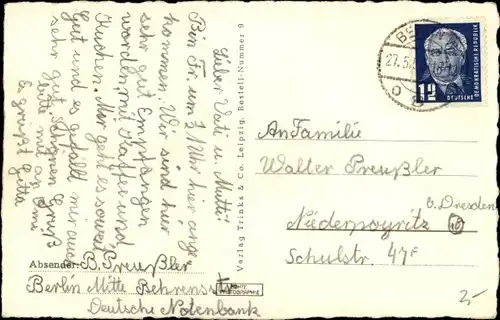 Lieber Vati u. Mutti!
Bin Fr. um 3 Uhr hier ange-
kommen. Wir sind hier
sehr gut Empfangen
worden, mit Kaffee und
Kuchen. Mir geht es soweit
Gut und es gefällt mir auch
sehr gut. Schönen Gruß
bitte mit an Omi
Es grüßt
Absender: B. Preußler
Berlin Mitte Behrenss
Deutsche Notenbank
Verlag Trinks & Co. Leipzig, Bestell-Nummer 9
ECHTE PHOTOGRAPHIE
27.5.
12
DEUTSCHE
DEMOKRATISCHE REPUBLIK
An Familie
Walter Preußler
b. Dresden
Niederpoyritz (10)
Schulstr. 47F